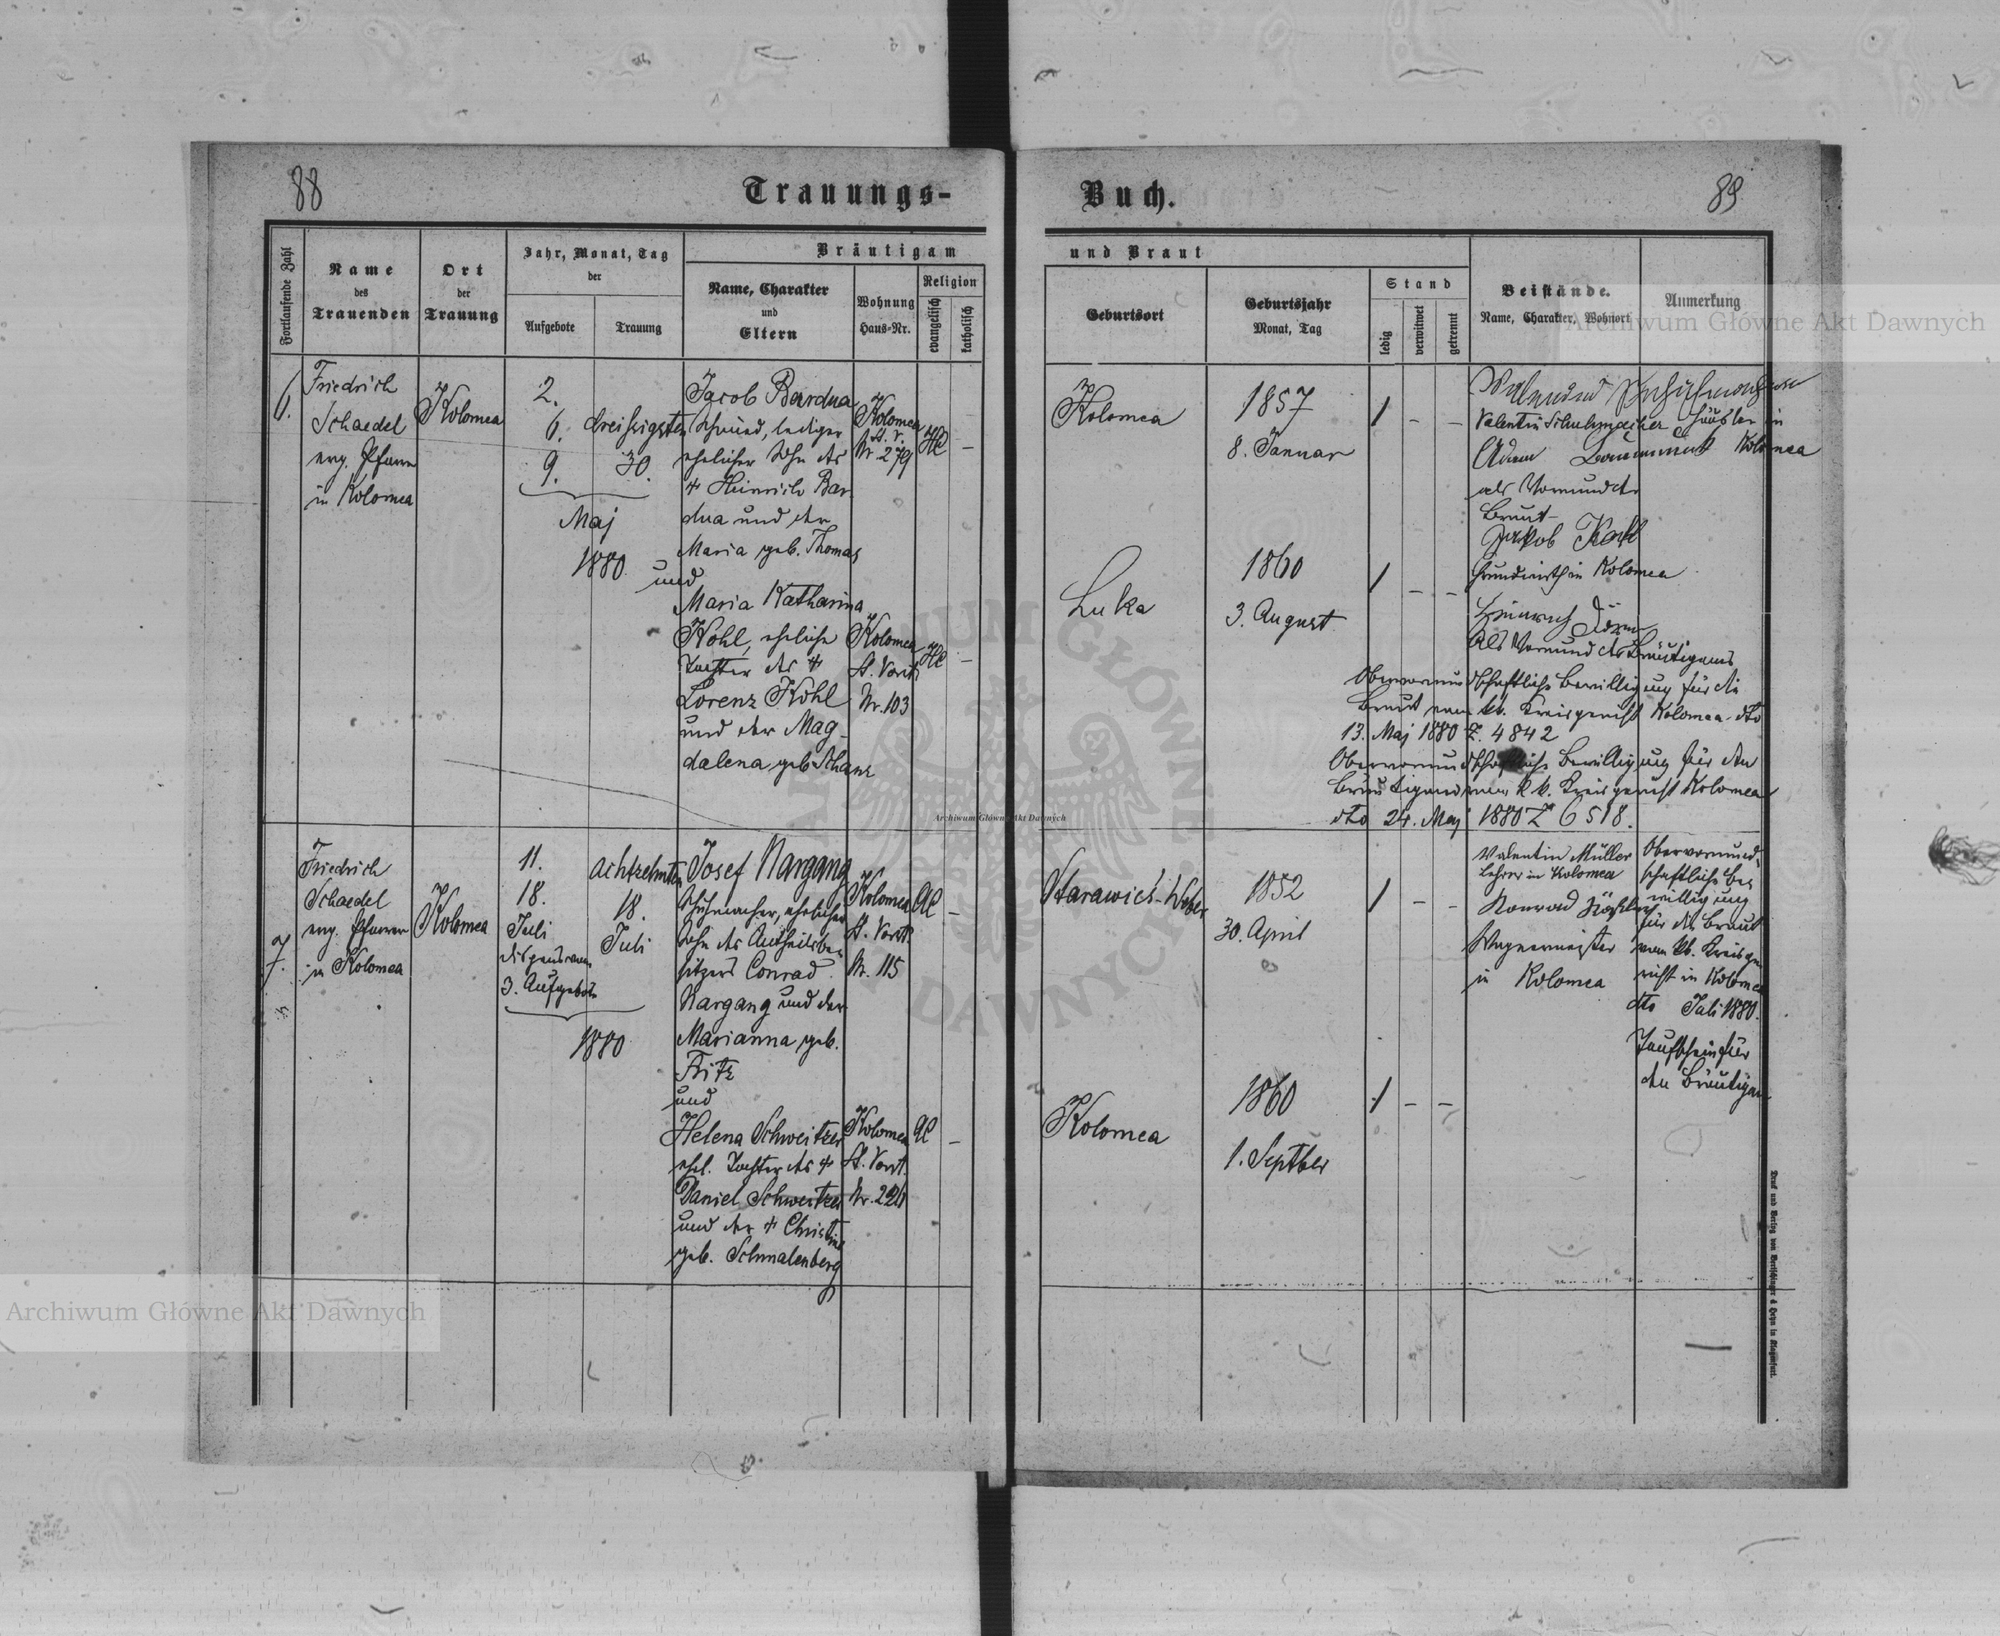 88
Trauungs-
Fortlaufende Zahl
Name
des
Trauenden
Ort
der
Trauung
Jahr, Monat, Tag
der
Aufgebote
Trauung
Bräutigam
Name, Charakter
und
Eltern
Wohnung
Haus-Nr.
Religion
evangelisch
katholisch
6.
Friedrich
Schaedel
evg. Pfarrer
in Kolomea
Kolomea
2.
6.
9.
Maj
1880
dreißigsten
30.
Jacob Bardua
Schmied, lediger
ehelicher Sohn des
† Heinrich Bar
dua und der
Maria geb. Thomas
und
Maria Katharina
Kohl, eheliche
Tochter des †
Lorenz Kohl
und der Mag-
dalena geb. Schanz
Kolomea
St. V.
Nr. 279
HC
–
Kolomea
St. Vorst.
Nr. 103
HC
–
7.
Friedrich
Schaedel
evg. Pfarrer
in Kolomea
Kolomea
11.
18.
Juli
3. Aufgebote
1880
achtzehnten
18.
Juli
Josef Nargang
Schuhmacher, ehelicher
Sohn des Antheilsbe
sitzers Conrad
Nargang und der
Marianna geb.
Fritz
und
Helena Schweitzer
ehel. Tochter des †
Daniel Schweitzer
und der † Christine
geb. Schmalenberg
Kolomea
St. Vorst.
Nr. 115
AC
–
Kolomea
St. Vorst.
Nr. 226
AC
–
Buch.
89
und Braut
Geburtsort
Geburtsjahr
Monat, Tag
Stand
ledig
verwitwet
getrennt
Beistände.
Name, Charakter, Wohnort
Anmerkung
Kolomea
1857
8. Januar
/ – –
Valentin Schuhmacher Häusler in
Adam Kolomea
als Vormund der
Braut
Jakob Kohl
Grundwirth in Kolomea
Luka
1860
3. August
/ – –
Heinrich
Als Vormund des Bräutigams
Obervormundschaftliche Bewilligung für die
Braut vom kk. Kreisgericht Kolomea dto
13. Maj 1880 Z. 4842
Obervormundschaftliche Bewilligung für den
Bräutigam vom k k. Kreisgericht Kolomea
dto 24. Maj 1880 Z 6518.
1852
30. April
/ – –
Valentin Müller
Lehrer in Kolomea
Konrad
Wagnermeister
in Kolomea
Obervormund-
schaftliche Be
willigung
für die Braut
vom kk. Kreisge
richt in Kolomea
dto Juli 1880.
Taufschein für
den Bräutigam
Kolomea
1860
1. Septber
/ – –
Druck und Verlag von Bertschinger & Heyn in Klagenfurt.
Archiwum Główne Akt Dawnych
Archiwum Główne Akt Dawnych
Archiwum Główne Akt Dawnych